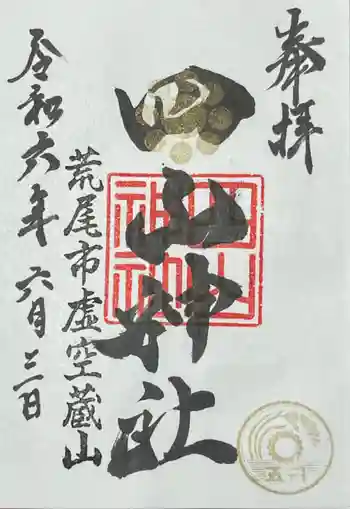 奉拝
四山神社
四山神社
荒尾市虚空蔵山
令和六年六月三日